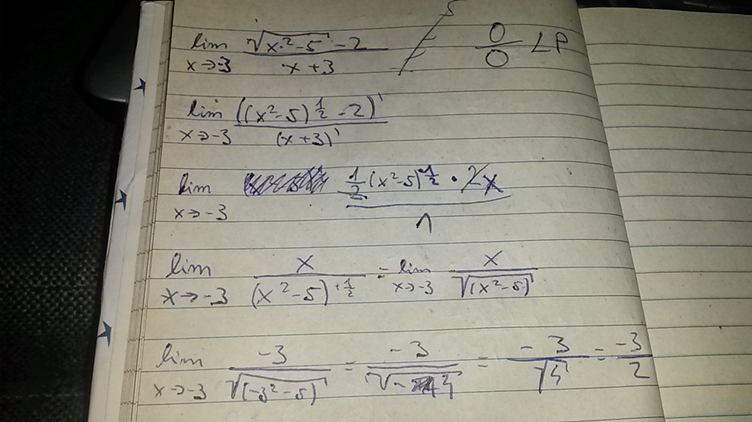 lim x→-3 (√(x²-5) - 2)/(x+3) 0/0 LP
lim x→-3 ((x²-5)^(1/2) - 2)'/(x+3)'
lim x→-3 (1/2 (x²-5)^(-1/2) · 2x)/1
lim x→-3 x/(x²-5)^(+1/2) = lim x→-3 x/√((x²-5))
lim x→-3 -3/√((-3²-5)) = -3/√4 = -3/√4 = -3/2